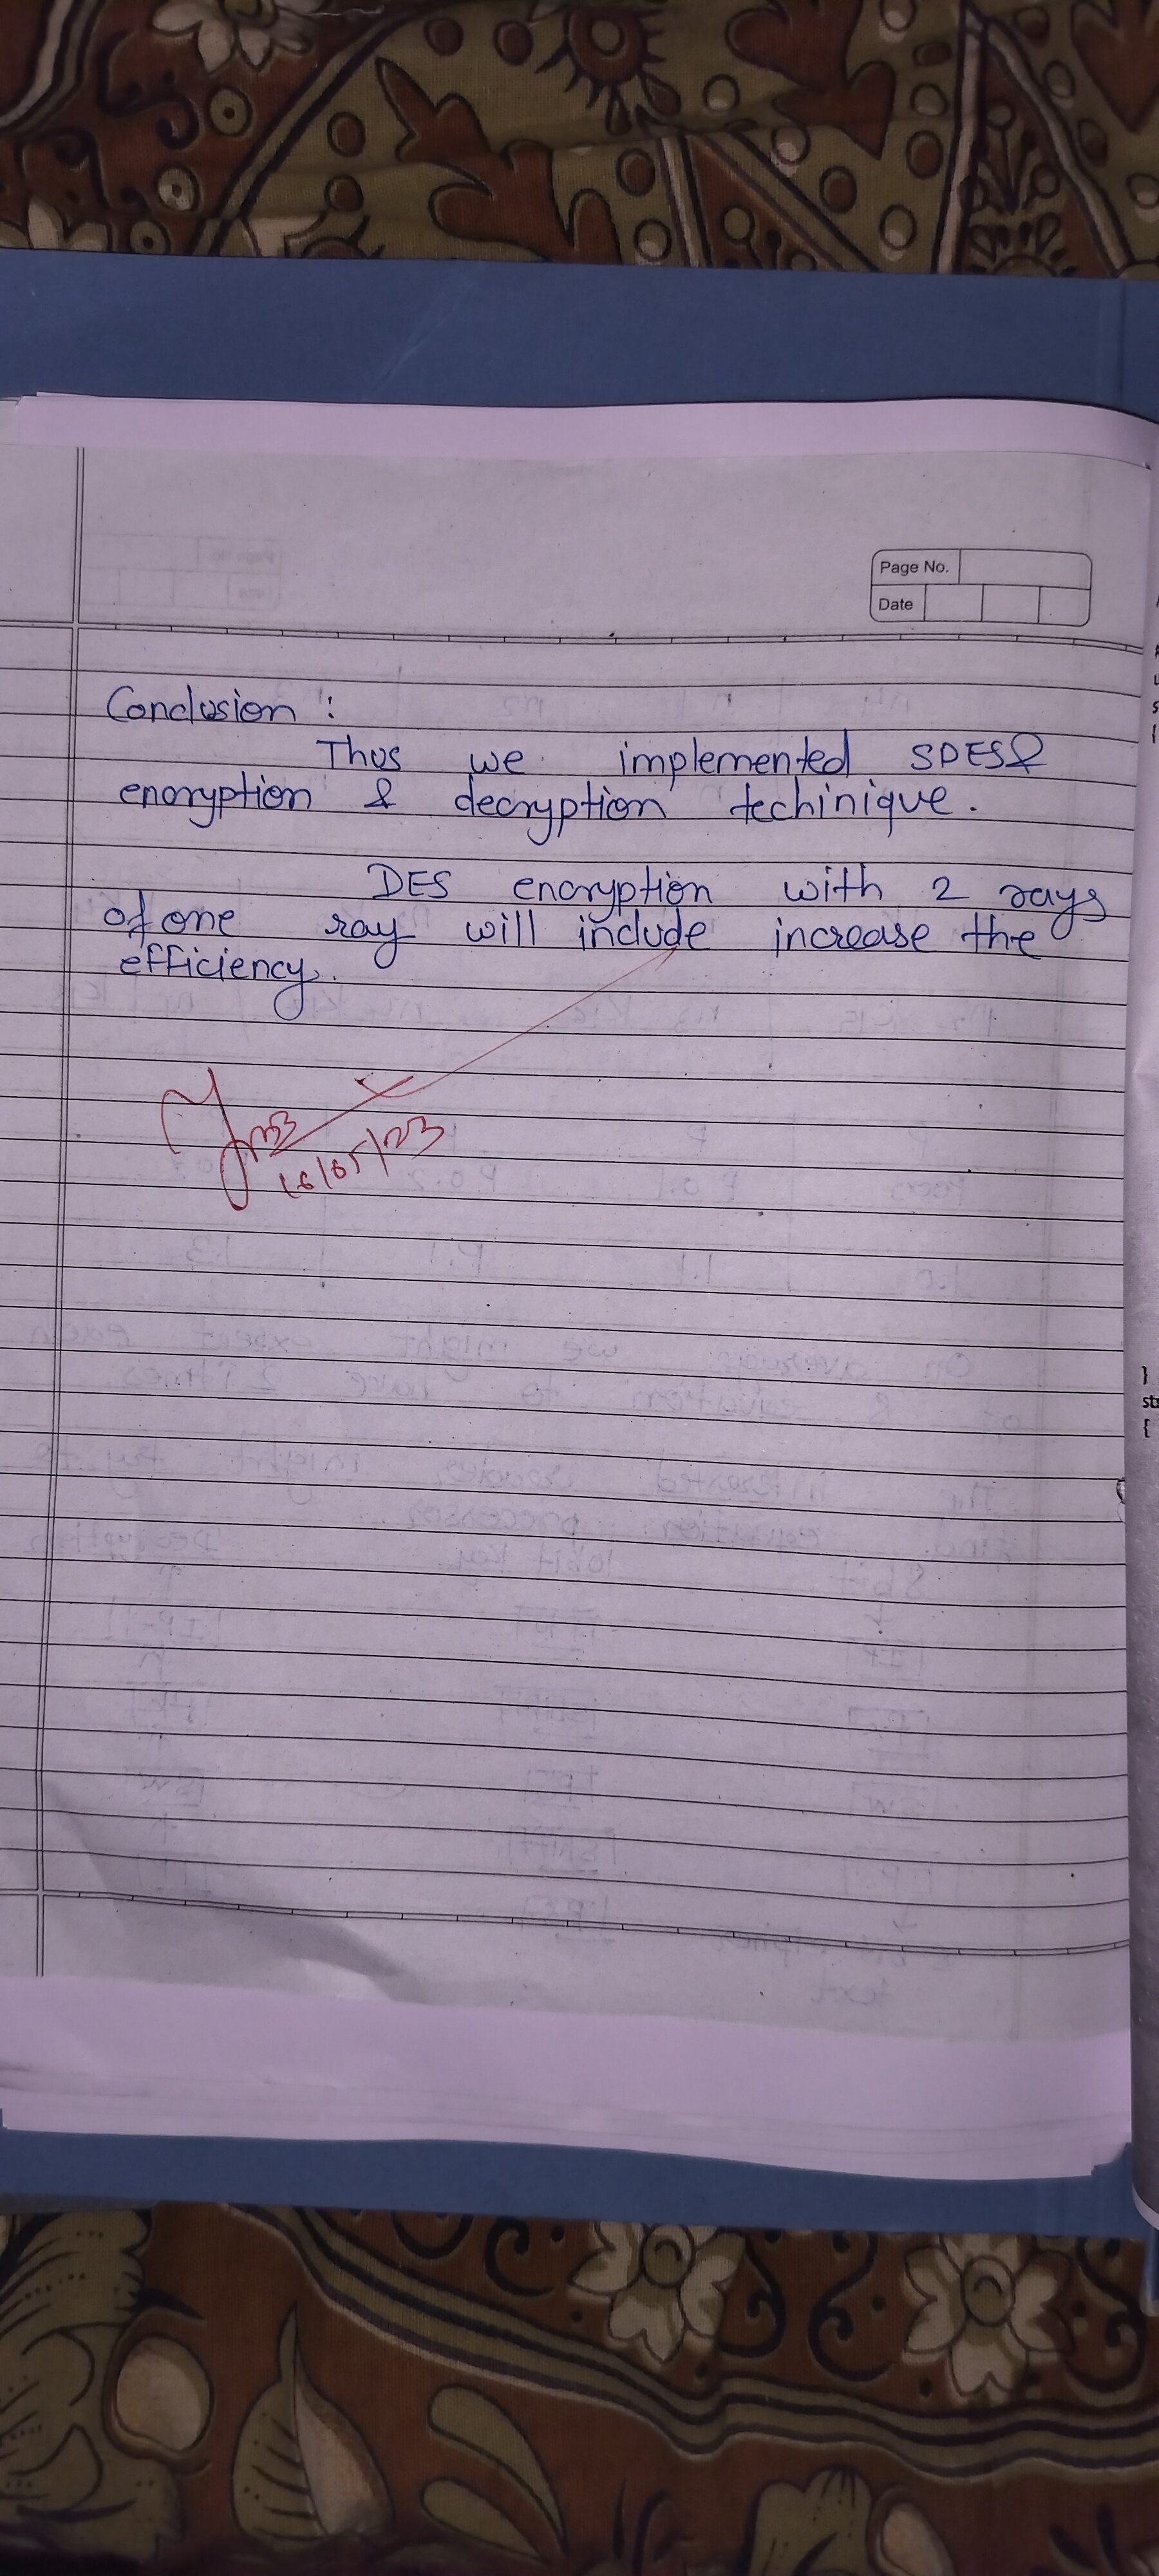 Page No.
Date
Conclusion :
Thus we implemented SDES &
encryption & decryption techinique.
DES encryption with 2 rays
of one ray will include increase the
efficiency.
16/05/23
}
{